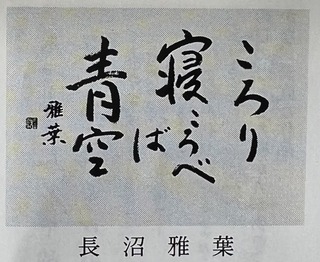 ころり
寝ころべ
ば
青空
雅葉
長沼雅葉